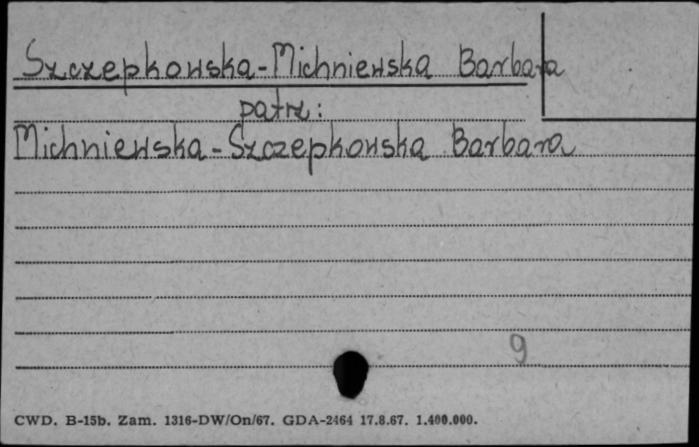 Szczepkowska-Michniewska Barbara
patrz:
Michniewska-Szczepkowska Barbara
9
CWD. B-15b. Zam. 1316-DW/On/67. GDA-2464 17.8.67. 1.400.000.